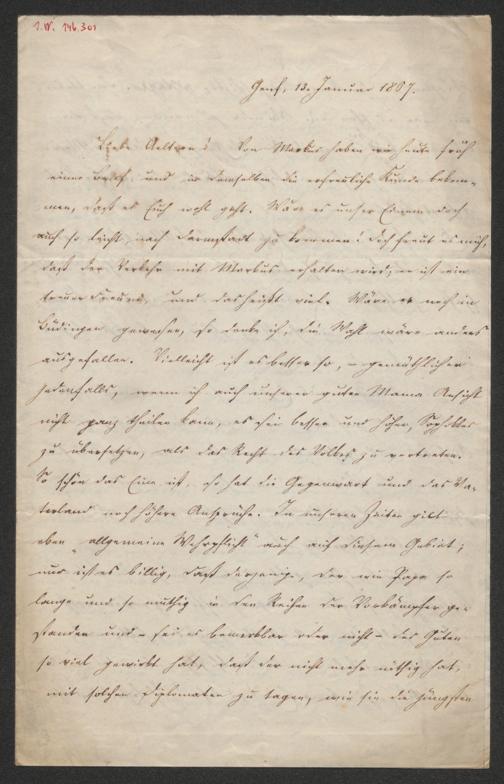 I.N. 146.301
Genf, 13. Januar 1867.
Liebe Aeltern! Von Markus haben wir heute früh
einen Brief und in demselben die erfreuliche Kunde bekom-
men, daß es Euch wohl geht. Wäre es unser Einem doch
auch so leicht, nach Darmstadt zu kommen! Doch freut es mich,
daß der Verkehr mit Markus erhalten wird; er ist ein
treuer Freund, und das heißt viel. Wäre er noch in
Büdingen gewesen, so denke ich, die Wahl wäre anders
ausgefallen. Vielleicht ist es besser so, – gemüthlicher
jedenfalls, wenn ich auch unserer guten Mama Ansicht
nicht ganz theilen kann, es sei besser und schöner, Sophokles
zu übersetzen, als das Recht des Volkes zu vertreten.
So schön das Eine ist, so hat die Gegenwart und das Va-
terland noch höhere Ansprüche. In unseren Zeiten gilt
eben „allgemeine Wehrpflicht" auch auf diesem Gebiet;
nur ist es billig, daß derjenige, der wie Papa so
lange und so muthig in den Reihen der Vorkämpfer ge-
standen und – sei es bemerkbar oder nicht – des Guten
so viel gewirkt hat, daß der nicht mehr nöthig hat,
mit solchen Diplomaten zu tagen, wie sie die jüngsten